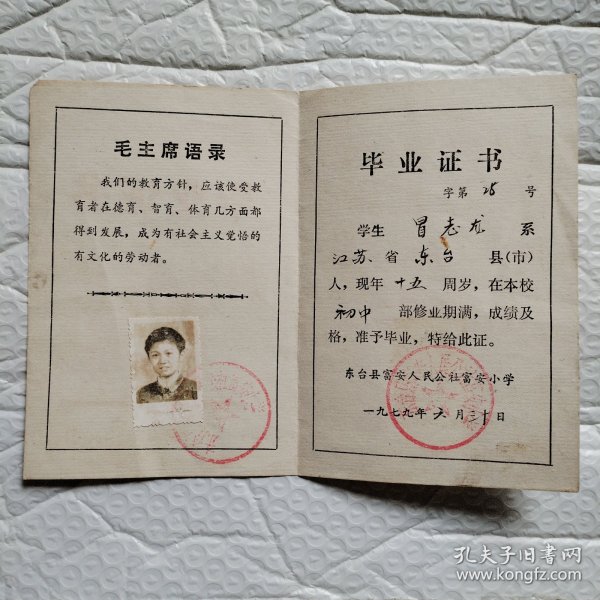 毛主席语录
我们的教育方针，应该使受教
育者在德育、智育、体育几方面都
得到发展，成为有社会主义觉悟的
有文化的劳动者。
毕业证书
字第 28 号
学生 冒志龙 系
江苏、省 东台 县(市)
人，现年 十五 周岁，在本校
初中 部修业期满，成绩及
格，准予毕业，特给此证。
东台县富安人民公社富安小学
一九七九年六月三十日
孔夫子旧书网
www.kongfz.com